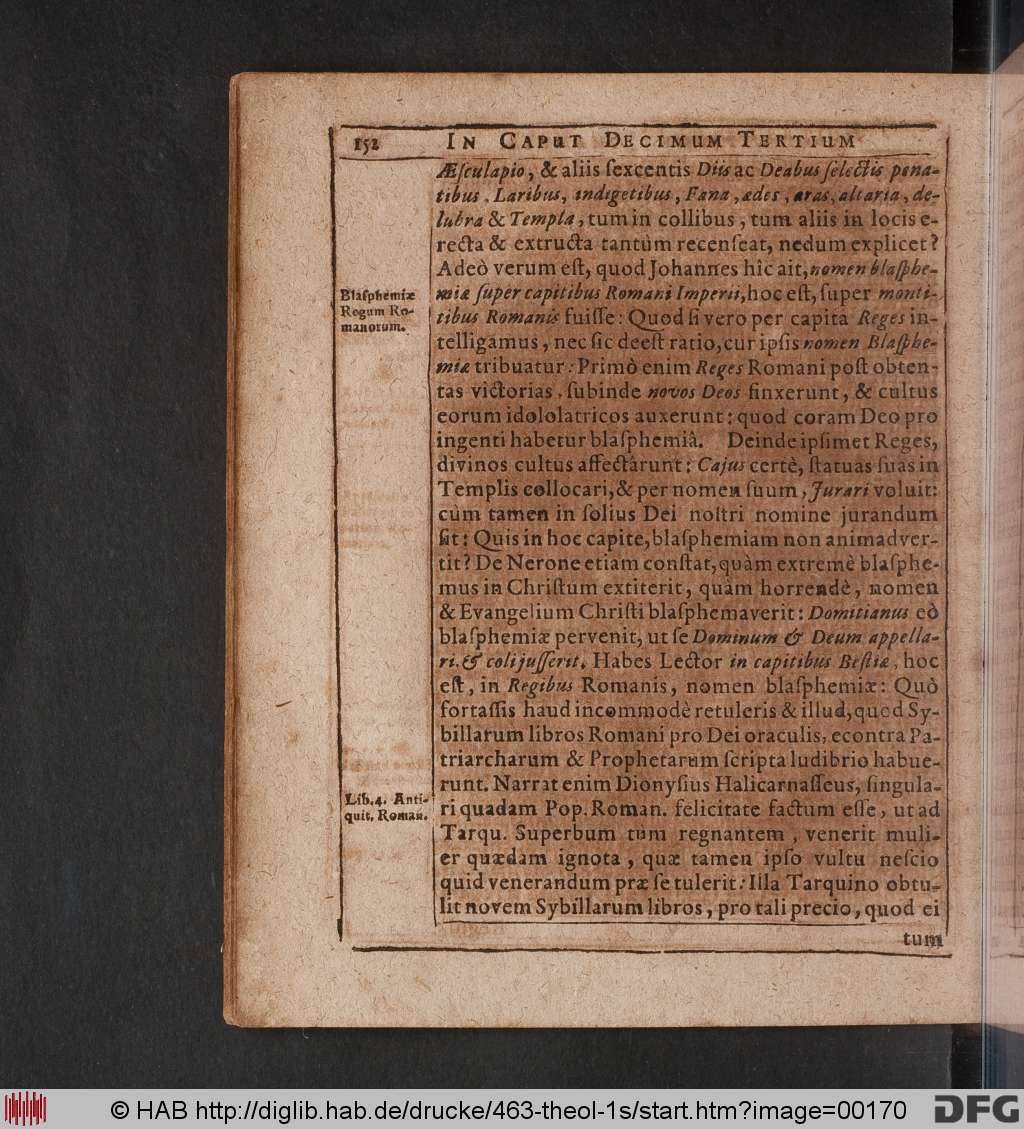 152 IN CAPUT DECIMUM TERTIUM
Æſculapio, & aliis ſexcentis Diis ac Deabus ſelectis pena-
tibus, Laribus, indigetibus, Fana, ædes, aras, altaria, de-
lubra & Templa, tum in collibus, tum aliis in locis e-
recta & extructa tantùm recenſeat, nedum explicet?
Adeò verum eſt, quod Johannes hîc ait, nomen blaſphe-
miæ ſuper capitibus Romani Imperii, hoc eſt, ſuper monti-
tibus Romanis fuiſſe: Quod ſi vero per capita Reges in-
telligamus, nec ſic deeſt ratio, cur ipſis nomen Blaſphe-
miæ tribuatur: Primò enim Reges Romani poſt obten-
tas victorias, ſubinde novos Deos finxerunt, & cultus
eorum idololatricos auxerunt: quod coram Deo pro
ingenti habetur blaſphemiâ. Deinde ipſimet Reges,
divinos cultus affectârunt: Cajus certè, ſtatuas ſuas in
Templis collocari, & per nomen ſuum, Jurari voluit:
cùm tamen in ſolius Dei noſtri nomine jurandum
ſit: Quis in hoc capite, blaſphemiam non animadver-
tit? De Nerone etiam conſtat, quàm extremè blaſphe-
mus in Chriſtum extiterit, quàm horrendè, nomen
& Evangelium Chriſti blaſphemaverit: Domitianus eò
blaſphemiæ pervenit, ut ſe Dominum & Deum appella-
ri, & coli juſſerit. Habes Lector in capitibus Beſtiæ, hoc
eſt, in Regibus Romanis, nomen blaſphemiæ: Quò
fortaſſis haud incommodè retuleris & illud, quod Sy-
billarum libros Romani pro Dei oraculis, econtra Pa-
triarcharum & Prophetarum ſcripta ludibrio habue-
runt. Narrat enim Dionyſius Halicarnaſſeus, ſingula-
ri quadam Pop. Roman. felicitate factum eſſe, ut ad
Tarqu. Superbum tum regnantem, venerit muli-
er quædam ignota, quæ tamen ipſo vultu neſcio
quid venerandum præ ſe tulerit: Illa Tarquino obtu-
lit novem Sybillarum libros, pro tali precio, quod ei
tum
Blaſphemiæ
Regum Ro-
manorum.
Lib. 4. Anti-
quit. Roman.
© HAB http://diglib.hab.de/drucke/463-theol-1s/start.htm?image=00170
DFG